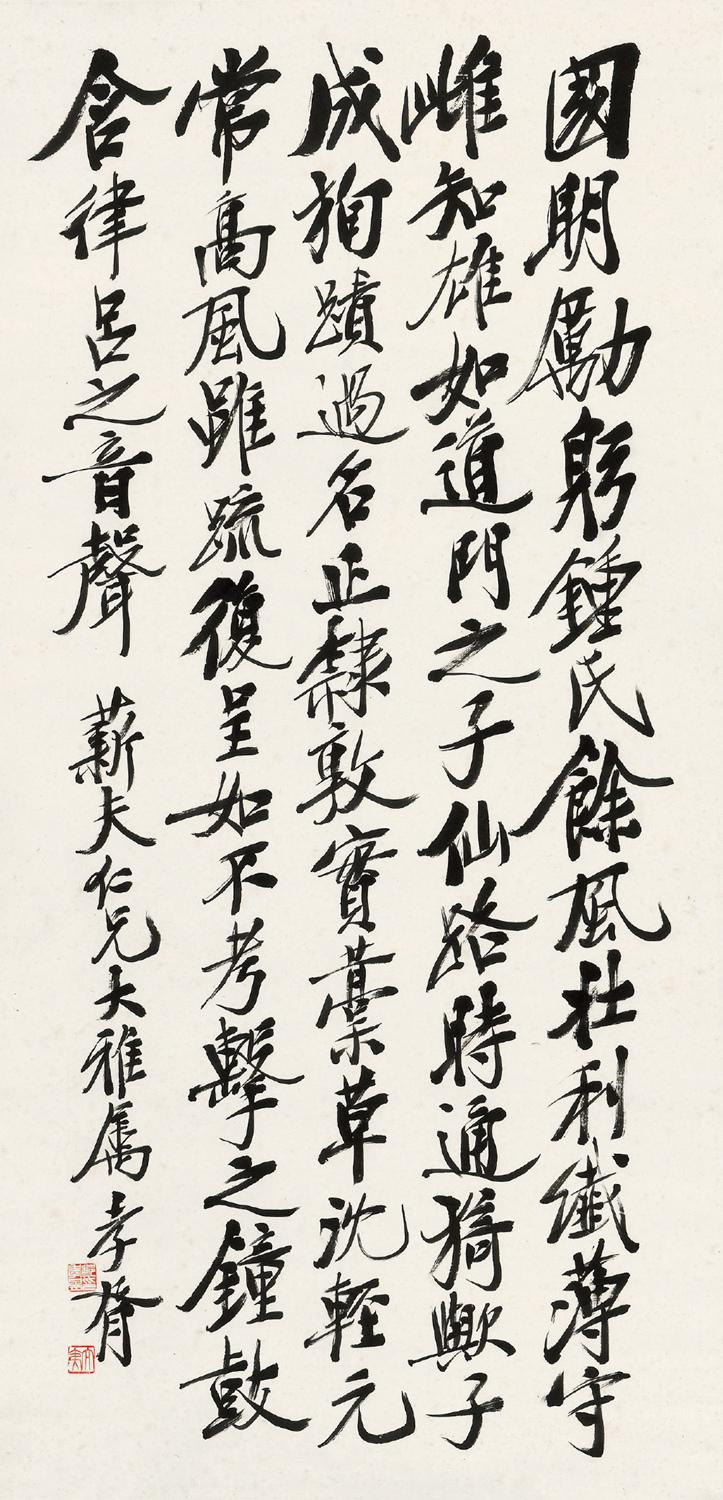 國明勵躬鍾氏餘風壯利纖薄守
雌知雄如道門之子仙路時通猗歟子
成狥蹟過名正隸敦實藁草沈輕元
常高風雖疏復呈如不考擊之鐘鼓
含律呂之音聲 薪夫仁兄大雅屬 孝胥